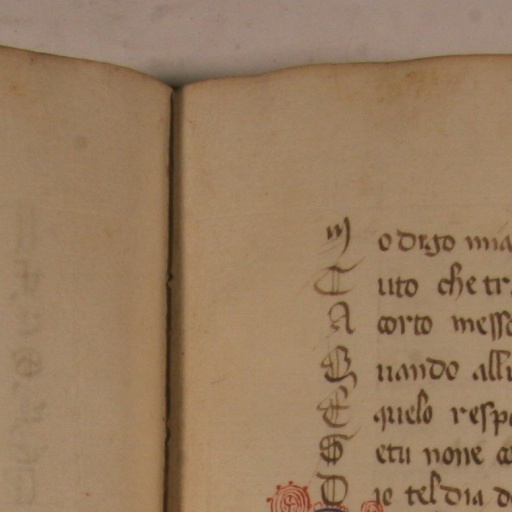 M odrgo mia
T uto che tr
A corto messo
G uando allu
E quelo resp
S etu none
D io tel dia d